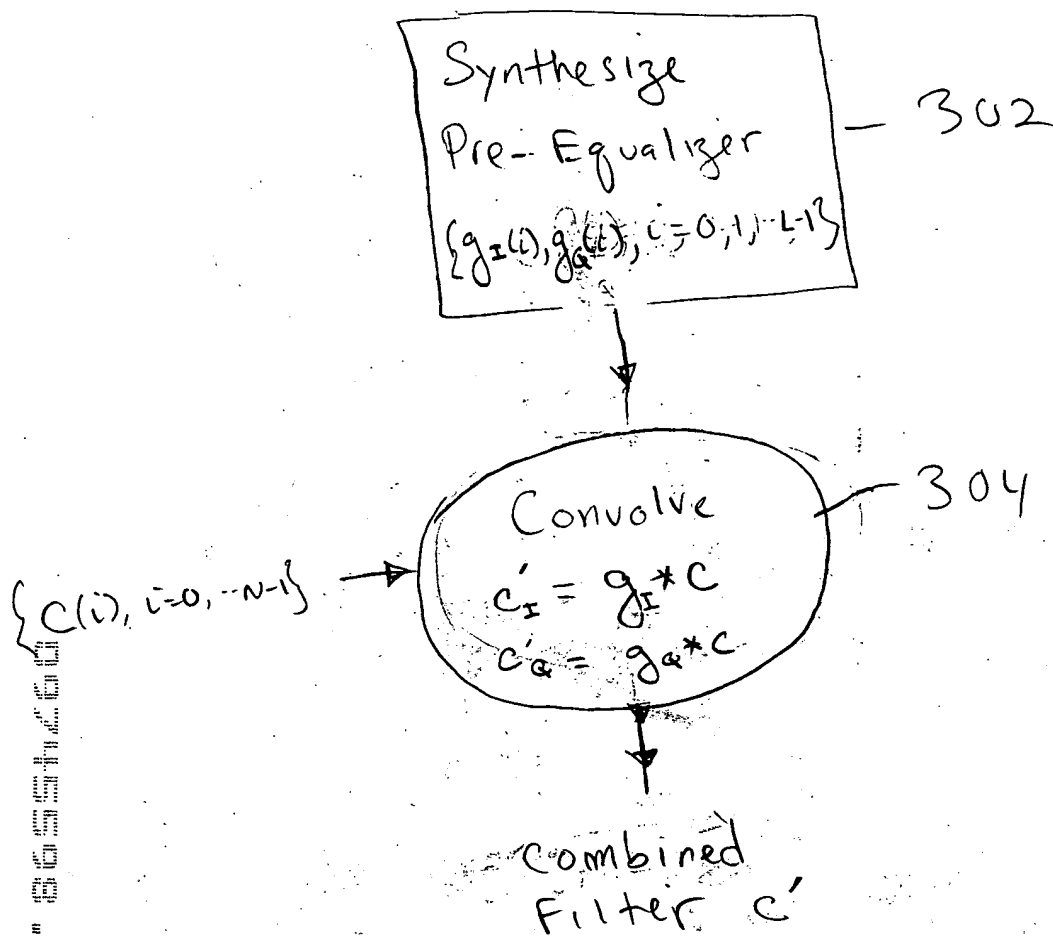 Synthesize
Pre-Equalizer
{g_I(i), g_Q(i), i=0,1,--L-1}
302
Convolve
c'_I = g_I * C
c'_Q = g_Q * C
304
{C(i), i=0, --N-1}
Combined
Filter c'